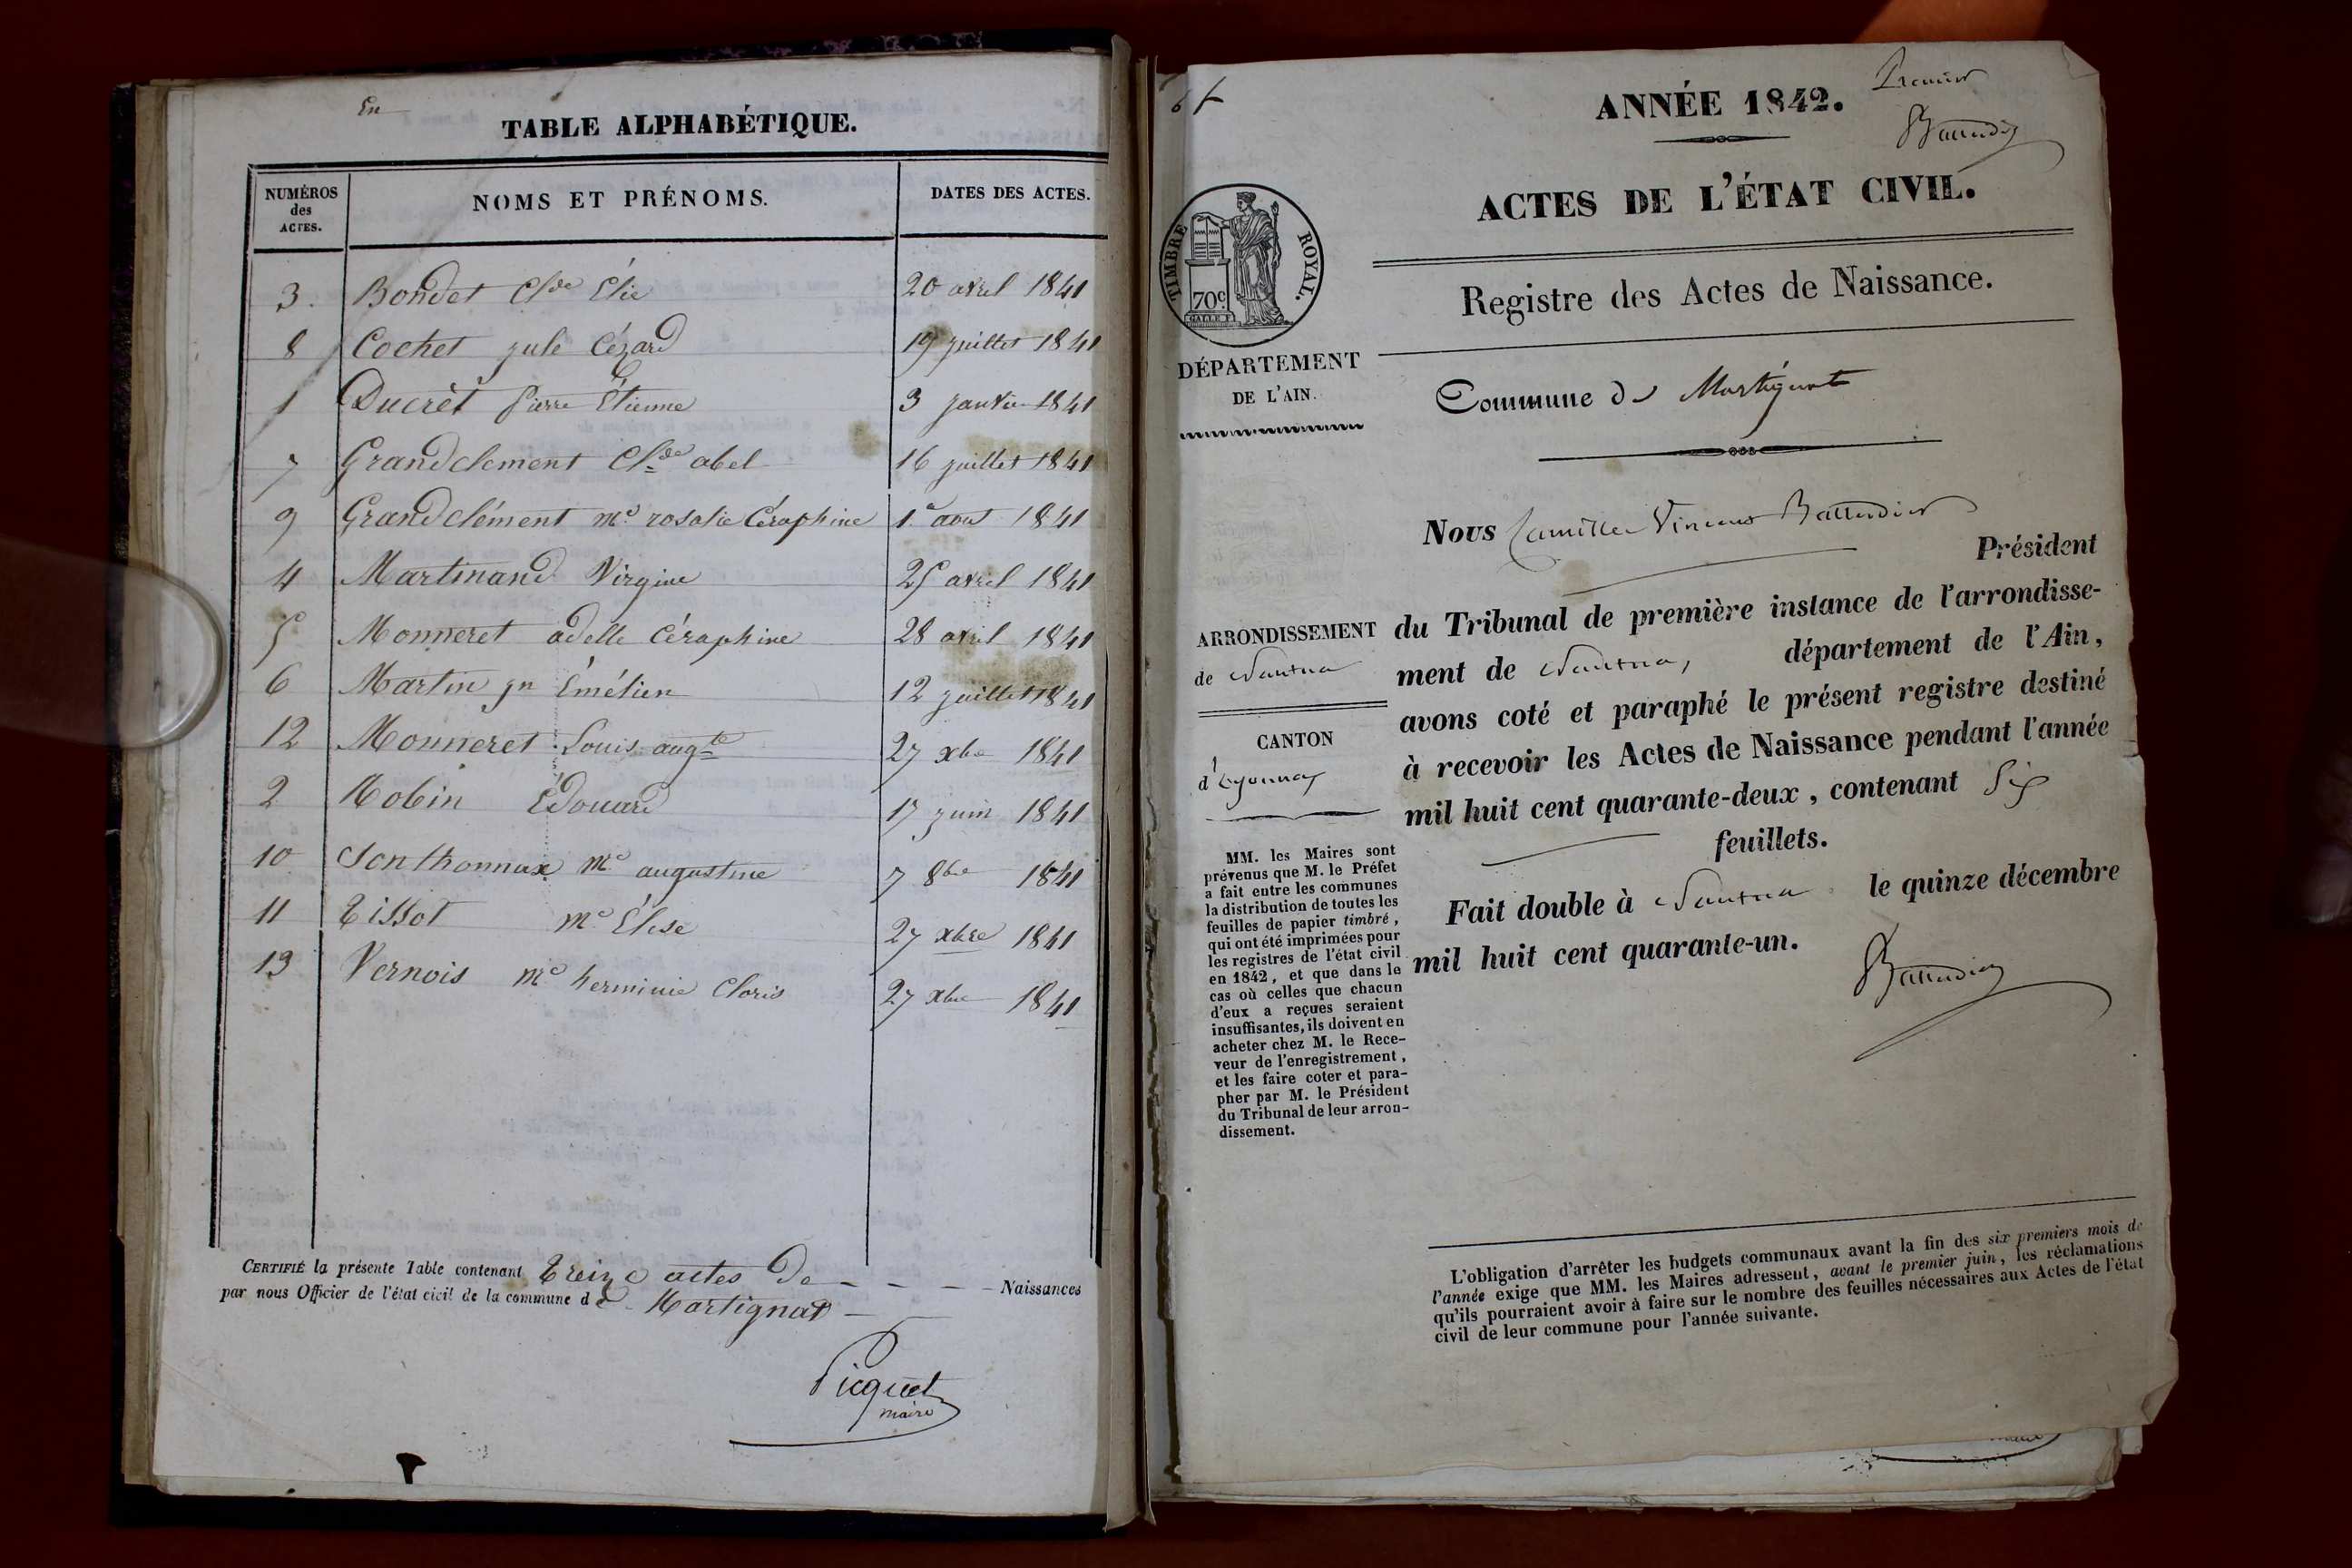 En
TABLE ALPHABÉTIQUE.
NUMÉROS des ACTES. NOMS ET PRÉNOMS. DATES DES ACTES.
3. Bondet Cl.de Élie 20 avril 1841
8 Cochet jule Cézard 19 juillet 1841
1 Ducrèt Pierre Étienne 3 janvier 1841
7 Grandclement Cl.de abel 16 juillet 1841
9 Grandclément m.e rosalie Céraphine 1.e aout 1841
4 Martinand Virgine 25 avril 1841
5 Monneret adelle Céraphine 28 avril 1841
6 Martin jn Émélien 12 juillet 1841
12 Monneret Louis aug.te 27 xbre 1841
2 Robin Édouard 17 juin 1841
10 Sonthonnax m.e augustine 7 8bre 1841
11 Tissot m.e Élise 27 xbre 1841
13 Vernois m.e herminie Cloris 27 xbre 1841
CERTIFIÉ la présente Table contenant Treize actes De - - - Naissances
par nous Officier de l'état civil de la commune de Martignat
Picquet
maire
ANNÉE 1842.
Premier
Battendier
ACTES DE L'ÉTAT CIVIL.
TIMBRE ROYAL.
70c
GALLE F.
Registre des Actes de Naissance.
DÉPARTEMENT
DE L'AIN.
Commune de Martignat
Nous Camille Vincent Battendier
Président
du Tribunal de première instance de l'arrondisse-
ment de Nantua, département de l'Ain,
avons coté et paraphé le présent registre destiné
à recevoir les Actes de Naissance pendant l'année
mil huit cent quarante-deux, contenant Six
feuillets.
Fait double à Nantua le quinze décembre
mil huit cent quarante-un.
Battendier
ARRONDISSEMENT
de Nantua
CANTON
d'Oyonnax
MM. les Maires sont
prévenus que M. le Préfet
a fait entre les communes
la distribution de toutes les
feuilles de papier timbré,
qui ont été imprimées pour
les registres de l'état civil
en 1842, et que dans le
cas où celles que chacun
d'eux a reçues seraient
insuffisantes, ils doivent en
acheter chez M. le Rece-
veur de l'enregistrement,
et les faire coter et para-
pher par M. le Président
du Tribunal de leur arron-
dissement.
L'obligation d'arrêter les budgets communaux avant la fin des six premiers mois de
l'année exige que MM. les Maires adressent, avant le premier juin, les réclamations
qu'ils pourraient avoir à faire sur le nombre des feuilles nécessaires aux Actes de l'état
civil de leur commune pour l'année suivante.